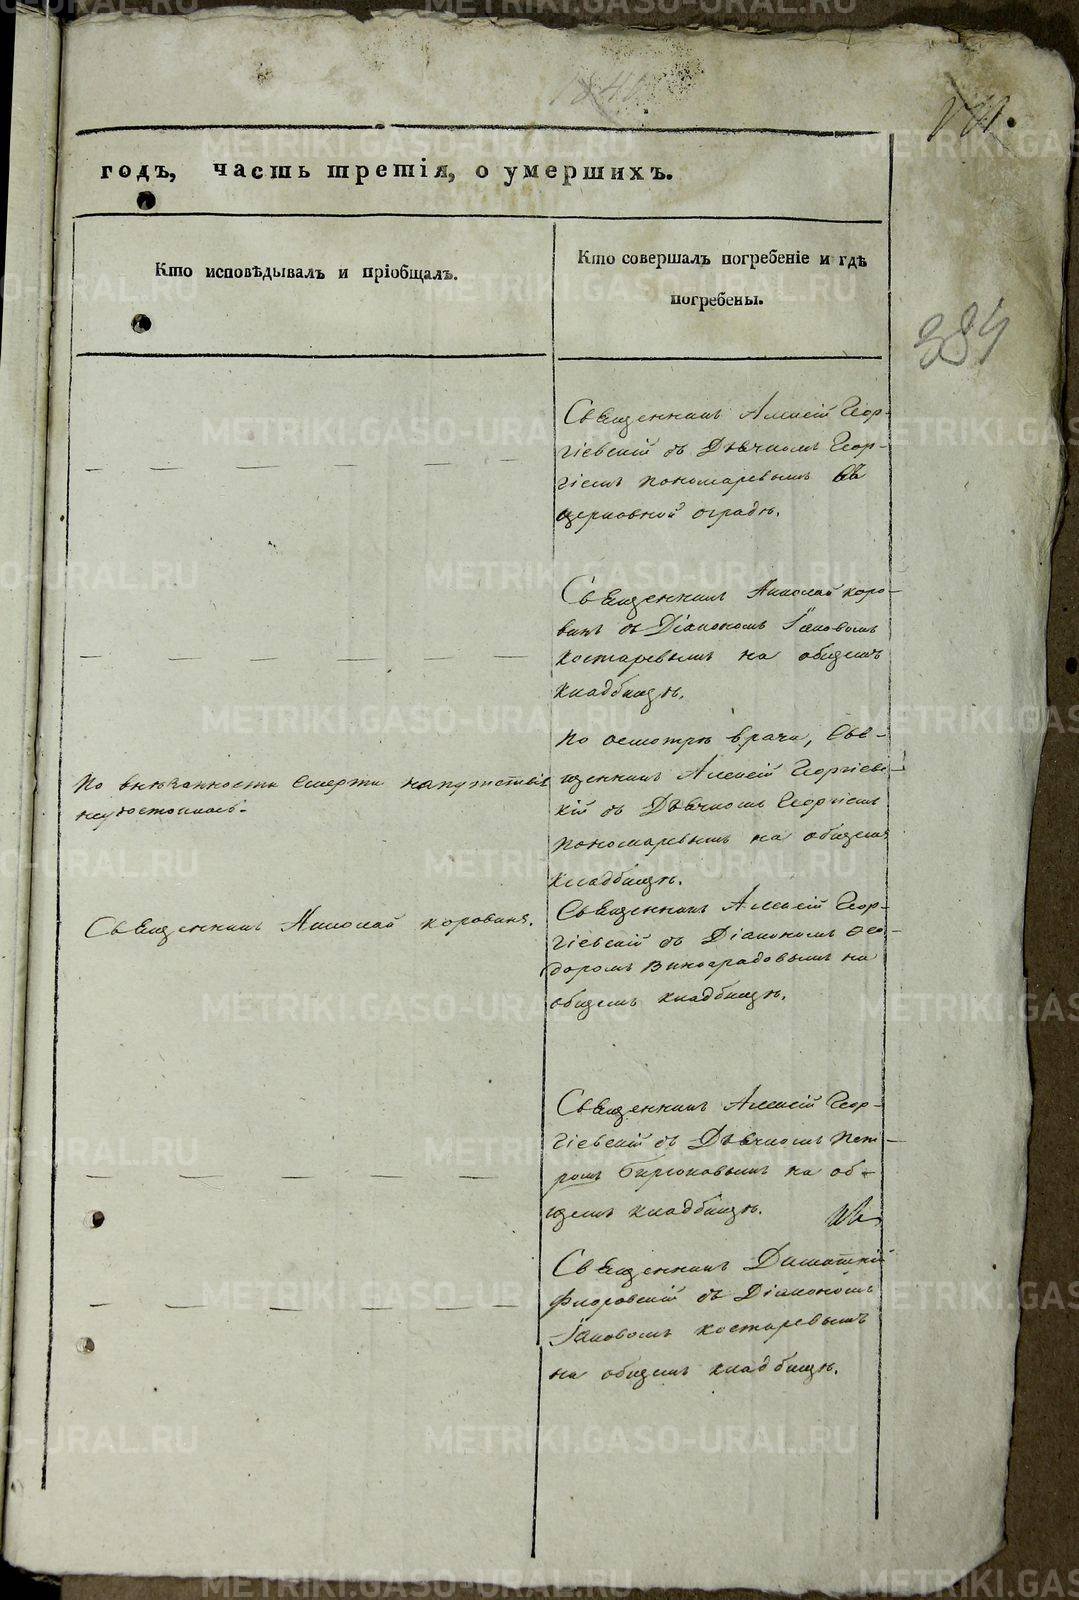 годъ, часть третія, о умершихъ.
Кто исповѣдывалъ и пріобщалъ.
Кто совершалъ погребеніе и гдѣ
погребены.
384
Священникъ Алексій Геор-
гіевскій съ Дьячкомъ Геор-
гіемъ Пономаревымъ въ
церковной оградѣ.
Священникъ Николай Коро-
винъ съ Діакономъ Іаковомъ
Костаревымъ на общемъ
кладбищѣ.
По внезапности смерти напутствія
неудостоилась.
По осмотрѣ врача, Свя-
щенникъ Алексій Георгіевс-
кій съ Дьячкомъ Георгіемъ
Пономаревымъ на общемъ
кладбищѣ.
Священникъ Николай Коровинъ.
Священникъ Алексій Геор-
гіевскій съ Діакономъ Ѳео-
доромъ Виноградовымъ на
общемъ кладбищѣ.
Священникъ Алексій Геор-
гіевскій съ Дьячкомъ Пет-
ромъ Бирюковымъ на об-
щемъ кладбищѣ.
Священникъ Димитрій
Флоровскій съ Діакономъ
Іаковомъ Костаревымъ
на общемъ кладбищѣ.
METRIKI.GASO-URAL.RU